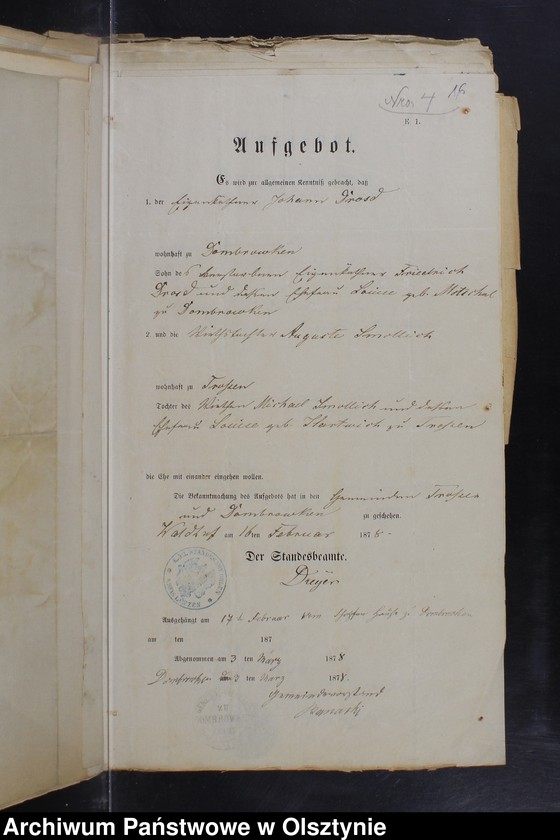 Nro. 4
18
E 1.
Aufgebot.
Es wird zur allgemeinen Kenntniß gebracht, daß
1. der Eigenkäthner Johann Drosd
wohnhaft zu Dombrowken
Sohn des verstorbenen Eigenkäthner Friedrich
Drosd und dessen Ehefrau Louise geb.
zu Dombrowken
2. und die Wirthstochter Auguste Smollich
wohnhaft zu Trossen
Tochter des Wirthen Michael Smollich und dessen
Ehefrau Louise geb. Hartwich zu Trossen
die Ehe mit einander eingehen wollen.
Die Bekanntmachung des Aufgebots hat in den Gemeinden Trossen
und Dombrowken zu geschehen.
am 16ten Februar 1878.
Der Standesbeamte.
Dreyer
Ausgehängt am 17 Februar
am ten 187
Abgenommen am 3 ten März 1878
3 ten März 1878.
Gemeindevorstand
Archiwum Państwowe w Olsztynie